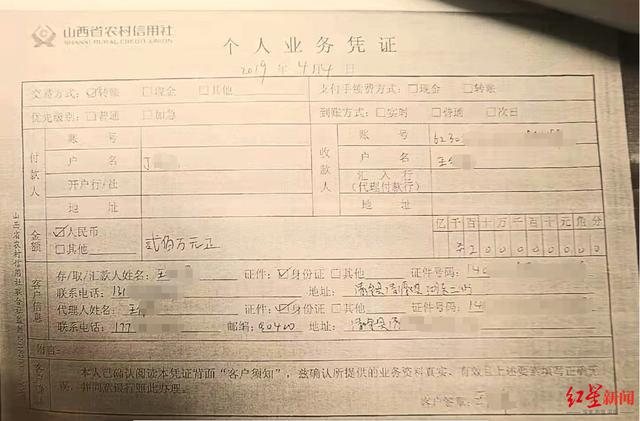 山西省农村信用社
SHANXI RURAL CREDIT UNION
个人业务凭证
2019 年 4 月 4 日
交易方式: ☑转账 □现金 □其他 支付手续费方式: □现金 □转账
优先级别: □普通 □加急 到账方式: □实时 □普通 □次日
付款人 账号 收款人 账号 6230
户名 丁 户名 王
开户行/社 汇入行(代理付款行)
地址 地址
金额 ☑人民币 □其他 贰佰万元正 亿千百十万千百十元角分
¥200000000
客户信息
存/取/汇款人姓名: 王 证件: ☑身份证 □其他 证件号码: 140
联系电话: 131 地址: 清徐县清源镇
代理人姓名: 王 证件: ☑身份证 □其他 证件号码: 14
联系电话: 177 邮编: 地址: 清徐县清
附言:
本人已确认阅读本凭证背面“客户须知”, 兹确认所提供的业务资料真实、有效且上述要素填写正确无
误, 并同意银行照此办理。
客户签章:
红星新闻